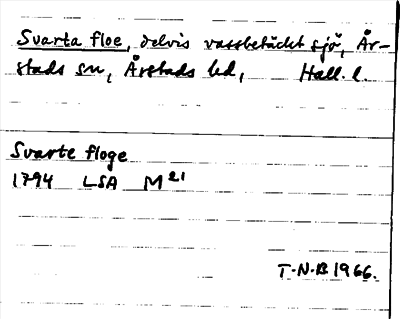 Svarta floe, delvis vassbetäckt sjö, År-
stads sn, Årstads hd, Hall. l.
Svarte floge
1794 LSA M21
T.N.B 1966.